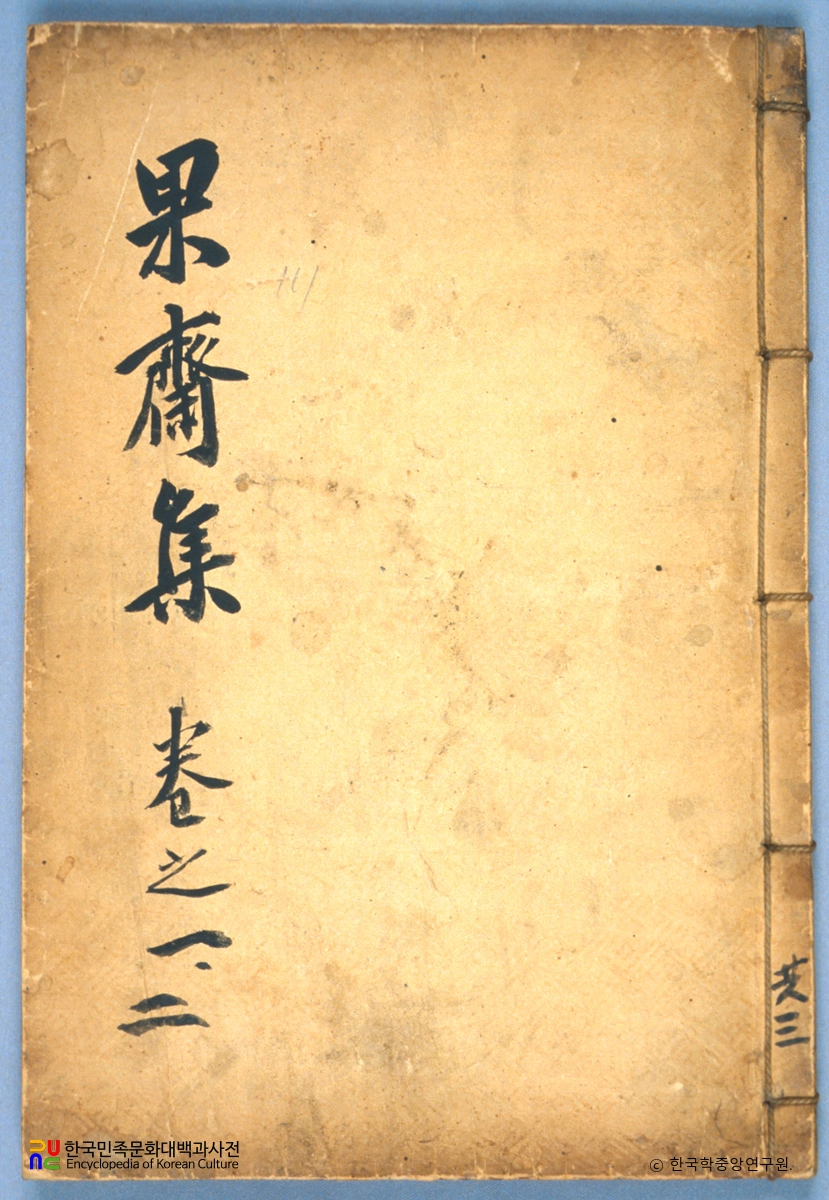 果齋集 卷之一、二
共三
한국민족문화대백과사전
Encyclopedia of Korean Culture
© 한국학중앙연구원.